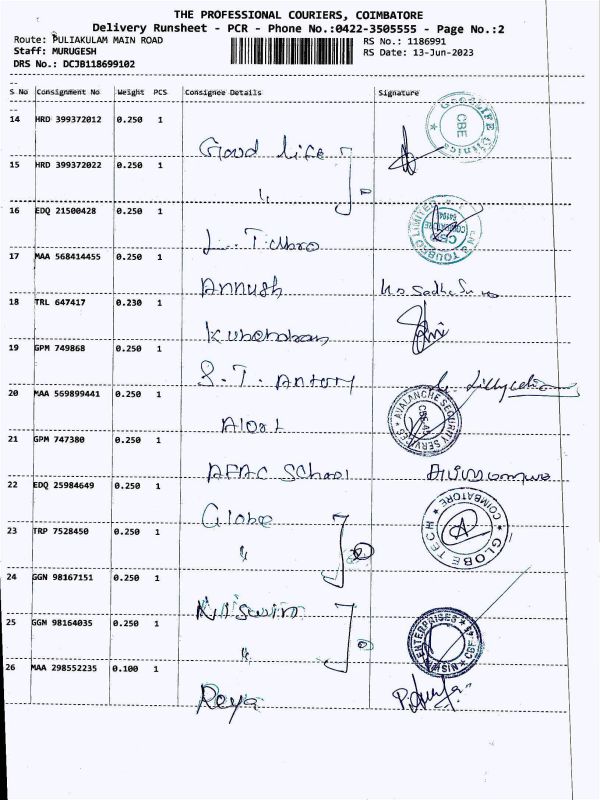 THE PROFESSIONAL COURIERS, COIMBATORE
Delivery Runsheet - PCR - Phone No.:0422-3505555 - Page No.:2
Route: PULIAKULAM MAIN ROAD RS No.: 1186991
Staff: MURUGESH RS Date: 13-Jun-2023
DRS No.: DCJB118699102
S No Consignment No Weight PCS Consignee Details Signature
14 HRD 399372012 0.250 1
Good life
GOODLIFE Clinics CBE
15 HRD 399372022 0.250 1
"
16 EDQ 21500428 0.250 1
L. Tubro
N & TOUBRO LIMITED COIMBATORE
17 MAA 568414455 0.250 1
Annush
18 TRL 647417 0.230 1
19 GPM 749868 0.250 1
S. T. Antony
20 MAA 569899441 0.250 1
AVALANCHE SECURITY SERVICES
21 GPM 747380 0.250 1
AFAC School
22 EDQ 25984649 0.250 1
Globe
GLOBE TECH COIMBATORE
23 TRP 7528450 0.250 1
"
24 GGN 98167151 0.250 1
25 GGN 98164035 0.250 1
"
ENTERPRISES
26 MAA 298552235 0.100 1
Roya